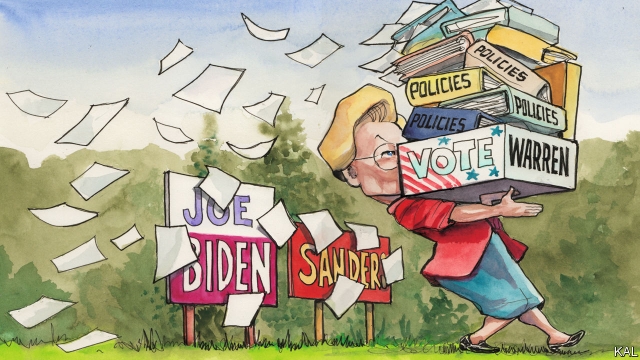 POLICIES
POLICIES
POLICIES
POLICIES
VOTE WARREN
JOE
BIDEN
SANDER
KAL